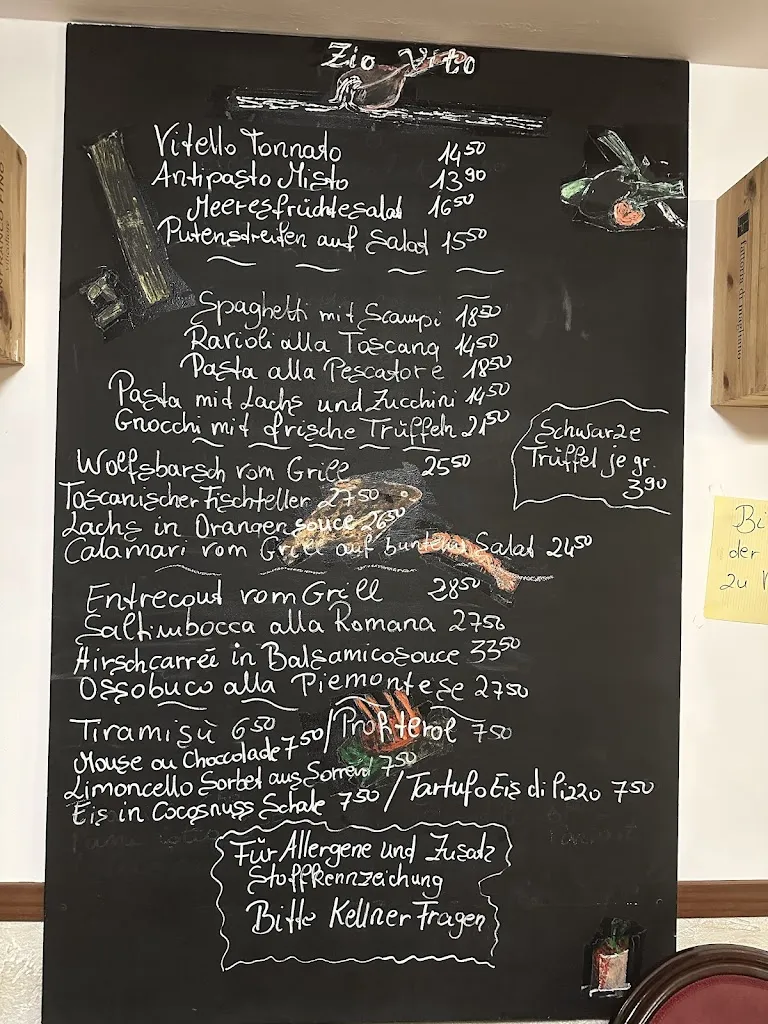 Zio Vito
Vitello Tonnato 14 50
Antipasto Misto 13 90
Meeresfrüchtesalat 16 50
Putenstreifen auf Salat 15 50
Spaghetti mit Scampi 18 50
Ravioli alla Toscana 14 50
Pasta alla Pescatore 18 50
Pasta mit Lachs und Zucchini 14 50
Gnocchi mit frische Trüffeln 21 50
Schwarze
Trüffel je gr.
3 90
Wolfsbarsch vom Grill 25 50
Toscanischer Fischteller 27 50
Lachs in Orangensouce 26 50
Calamari vom Grill auf buntem Salat 24 50
Entrecout vom Grill 28 50
Saltimbocca alla Romana 27 50
Hirschcarreé in Balsamicosouce 33 50
Ossobuco alla Piemontese 27 50
Tiramisù 6 50 / Profiterol 7 50
Mouse au Choccolade 7 50
Limoncello Sorbet aus Sorrent 7 50
Eis in Cocosnuss Schale 7 50 / Tartufo Eis di Pizzo 7 50
Für Allergene und Zusatz
Stoffkennzeichung
Bitte Kellner Fragen
Bi
der
zu
fattoria di magliano